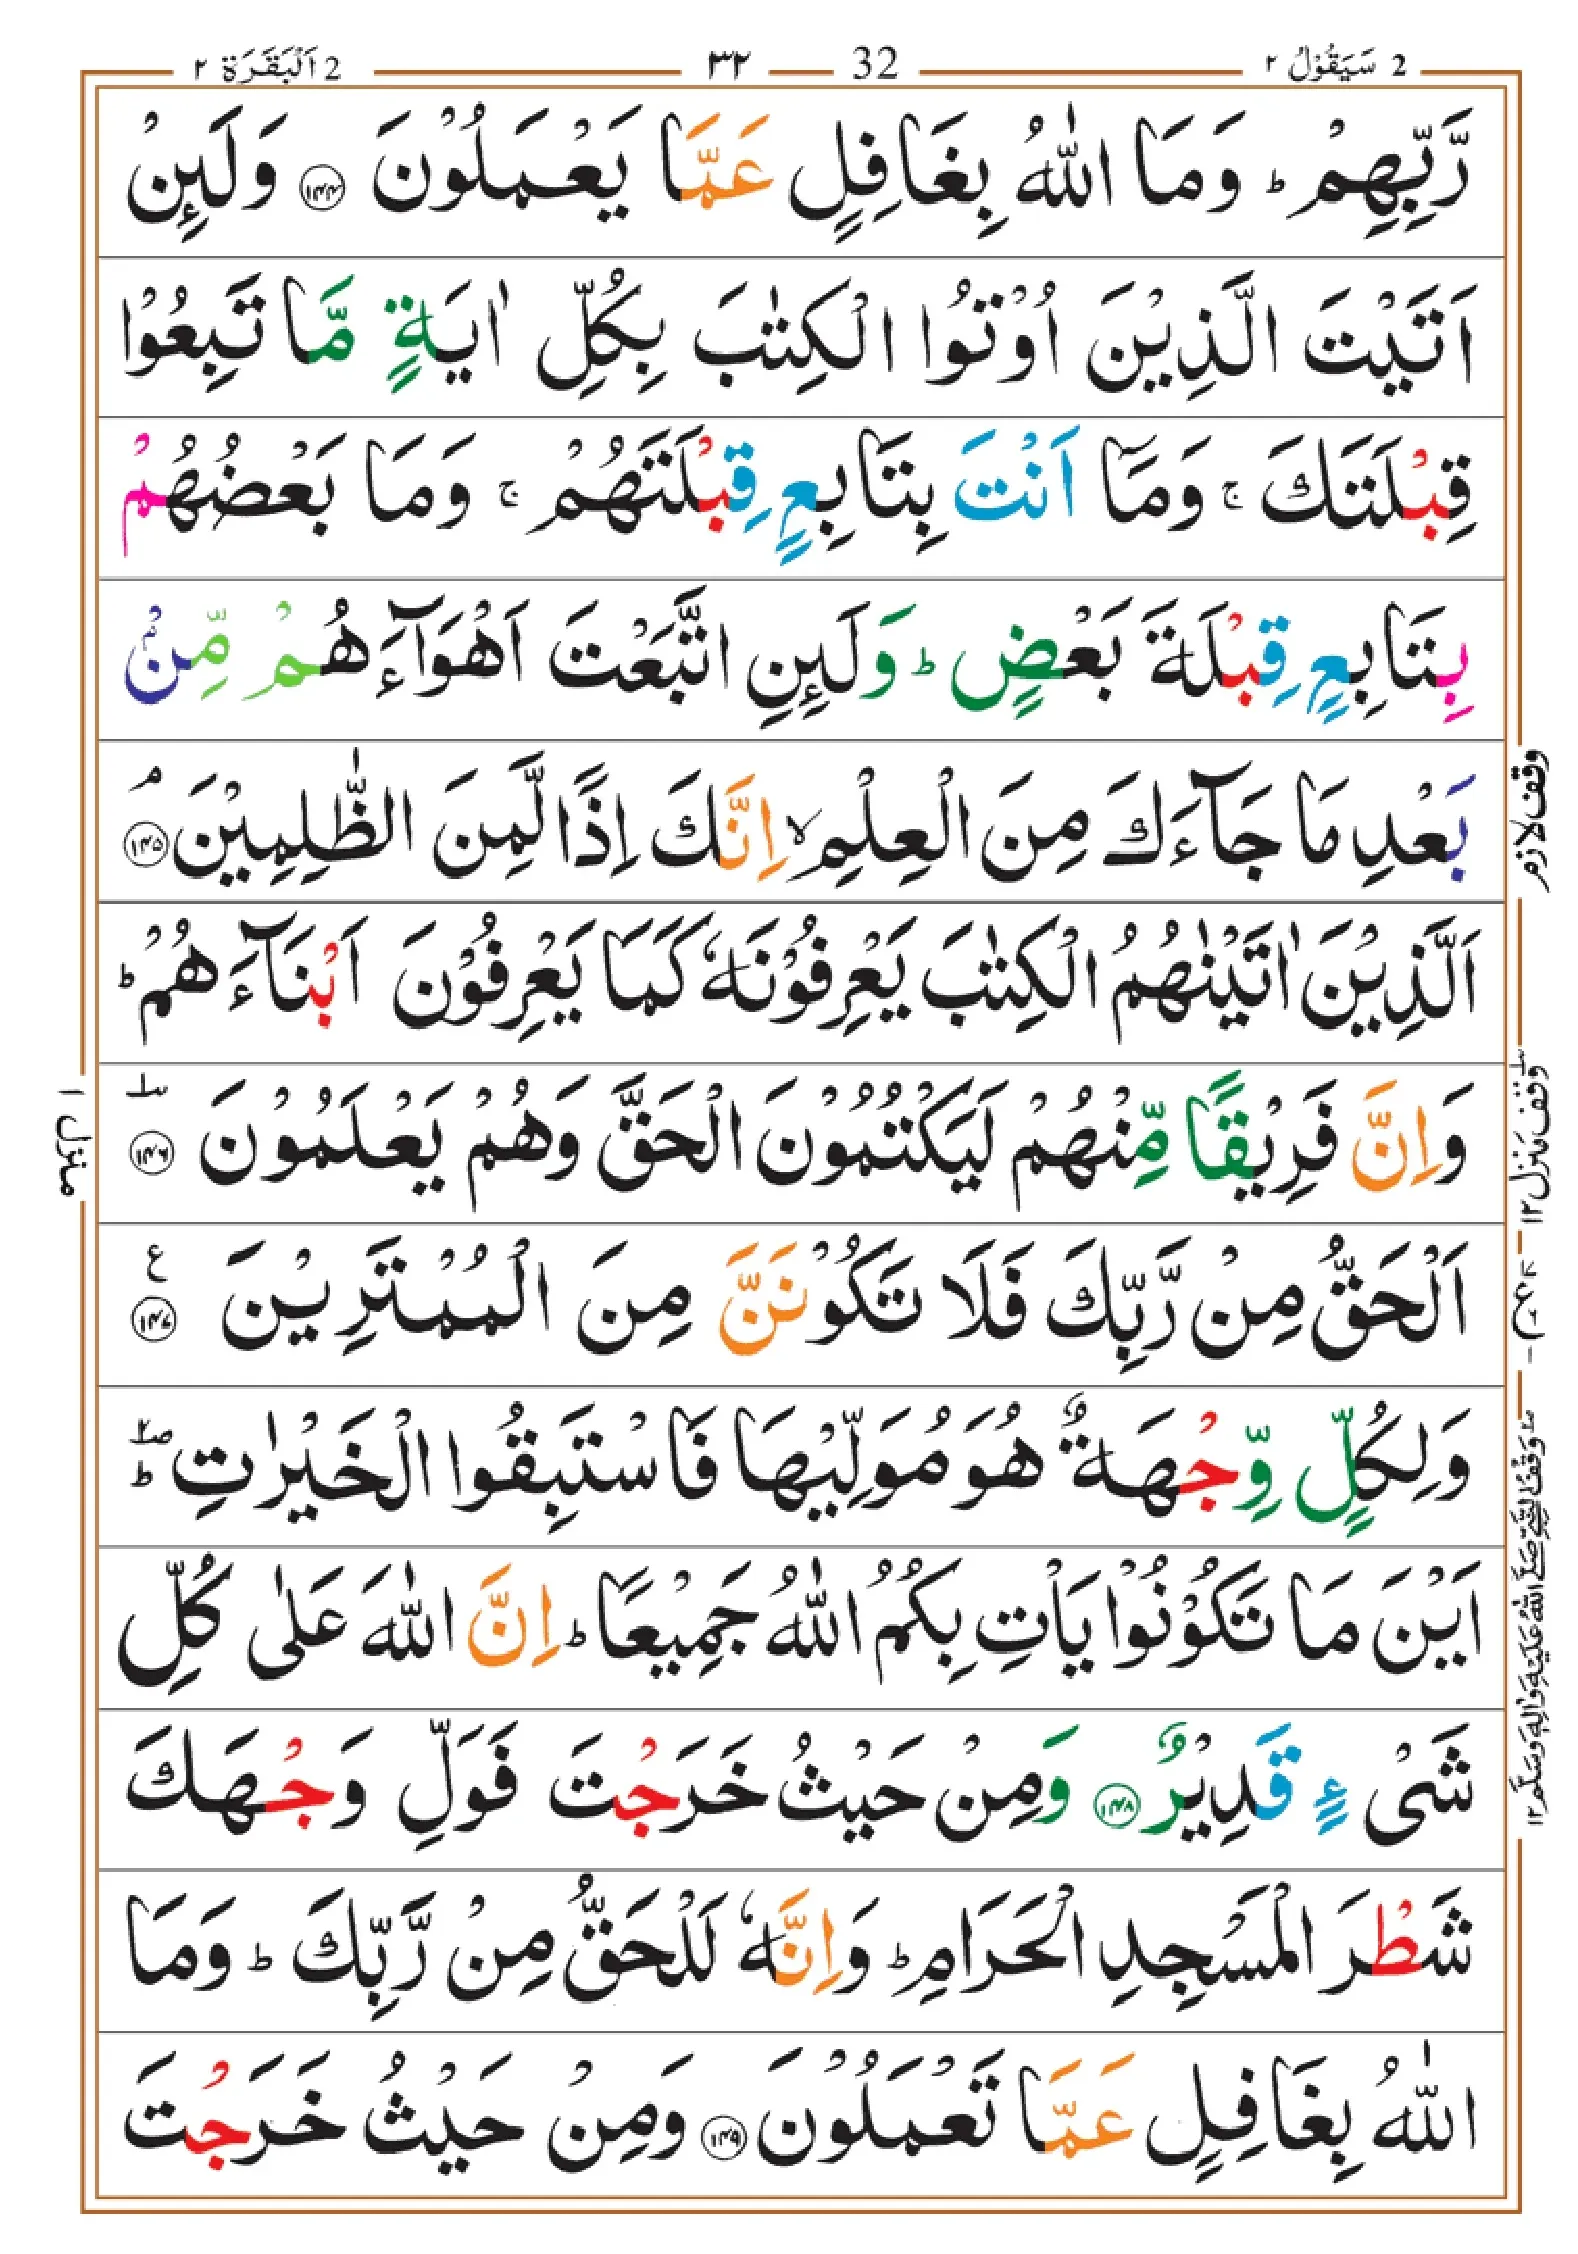 2 سَيَقُوْلُ ٢
32 ٣٢
2 اَلْبَقَرَة ٢
رَّبِّهِمْ ؕ وَمَا اللّٰهُ بِغَافِلٍ عَمَّا يَعْمَلُوْنَ ﴿۱۴۴﴾ وَلَٮِٕنْ
اَتَيْتَ الَّذِيْنَ اُوْتُوا الْكِتٰبَ بِكُلِّ اٰيَةٍ مَّا تَبِعُوْا
قِبْلَتَكَ ۚ وَمَآ اَنْتَ بِتَابِعٍ قِبْلَتَهُمْ ۚ وَمَا بَعْضُهُمْ
بِتَابِعٍ قِبْلَةَ بَعْضٍ ؕ وَلَٮِٕنِ اتَّبَعْتَ اَهْوَآءَهُمْ مِّنْۢ
بَعْدِ مَا جَآءَكَ مِنَ الْعِلْمِ ۙ اِنَّكَ اِذًا لَّمِنَ الظّٰلِمِيْنَ ۘ ﴿۱۴۵﴾
اَلَّذِيْنَ اٰتَيْنٰهُمُ الْكِتٰبَ يَعْرِفُوْنَهٗ كَمَا يَعْرِفُوْنَ اَبْنَآءَهُمْ ؕ
وَاِنَّ فَرِيْقًا مِّنْهُمْ لَيَكْتُمُوْنَ الْحَقَّ وَهُمْ يَعْلَمُوْنَ ﴿۱۴۶﴾
اَلْحَقُّ مِنْ رَّبِّكَ فَلَا تَكُوْنَنَّ مِنَ الْمُمْتَرِيْنَ ﴿۱۴۷﴾ ع
وَلِكُلٍّ وِّجْهَةٌ هُوَ مُوَلِّيْهَا فَاسْتَبِقُوا الْخَيْرٰتِ ؕ
اَيْنَ مَا تَكُوْنُوْا يَاْتِ بِكُمُ اللّٰهُ جَمِيْعًا ؕ اِنَّ اللّٰهَ عَلٰى كُلِّ
شَىْءٍ قَدِيْرٌ ﴿۱۴۸﴾ وَمِنْ حَيْثُ خَرَجْتَ فَوَلِّ وَجْهَكَ
شَطْرَ الْمَسْجِدِ الْحَرَامِ ؕ وَاِنَّهٗ لَلْحَقُّ مِنْ رَّبِّكَ ؕ وَمَا
اللّٰهُ بِغَافِلٍ عَمَّا تَعْمَلُوْنَ ﴿۱۴۹﴾ وَمِنْ حَيْثُ خَرَجْتَ
وقف لازم
وقف منزل ١٢
وَقْفُ النَّبِيِّ صَلَّى اللّٰهُ عَلَيْهِ وَاٰلِهٖ وَسَلَّمَ ١٢
منزل ١